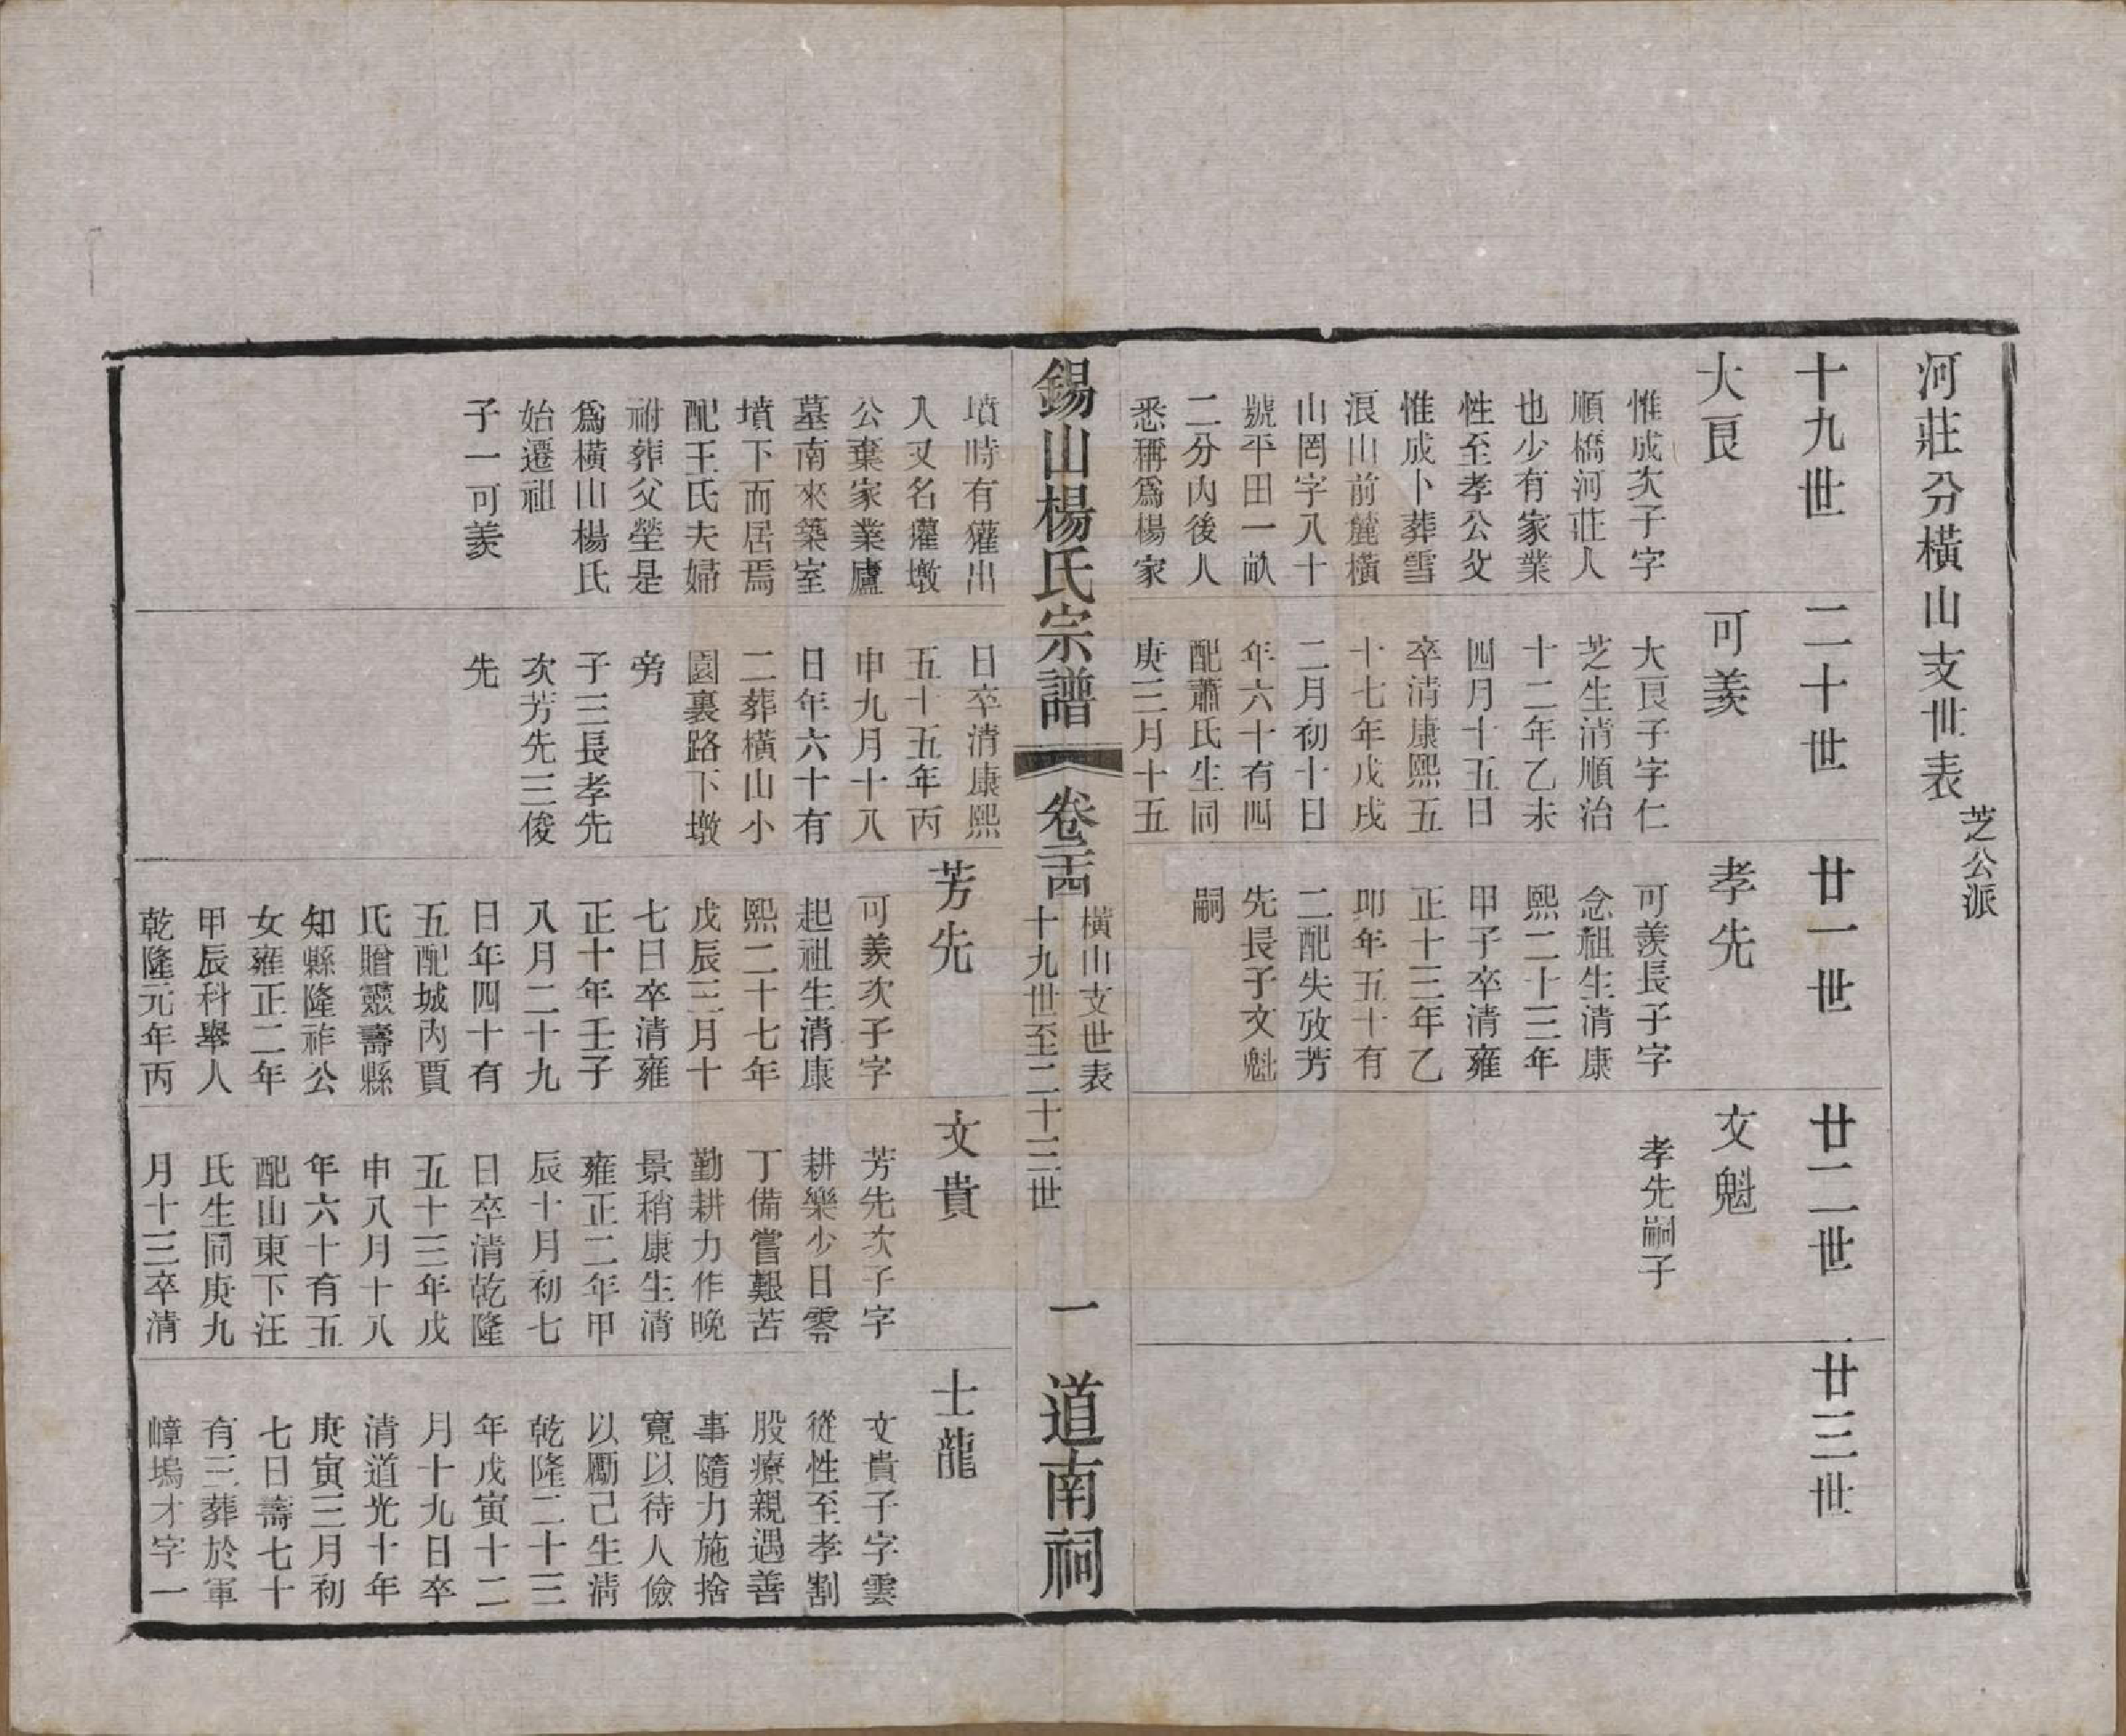 河莊分橫山支世表 芝公派
十九世
大良
惟成次子字
順橋河莊人
也少有家業
性至孝公父
惟成卜葬雪
浪山前麓橫
山罔字八十
號平田一畝
二分內後人
悉稱爲楊家
二十世
可羨
大良子字仁
芝生清順治
十二年乙未
四月十五日
卒清康熙五
十七年戊戌
二月初十日
年六十有四
配蕭氏生同
庚三月十五
廿一世
孝先
可羨長子字
念祖生清康
熙二十三年
甲子卒清雍
正十三年乙
卯年五十有
二配失攷芳
先長子文魁
嗣
廿二世
文魁
孝先嗣子
廿三世
錫山楊氏宗譜
卷二十四
橫山支世表
十九世至二十三世
一
道南祠
墳時有獾出
入又名獾墩
公棄家業廬
墓南來築室
墳下而居焉
配王氏夫婦
祔葬父塋是
爲橫山楊氏
始遷祖
子一可羨
日卒清康熙
五十五年丙
申九月十八
日年六十有
二葬橫山小
園裏路下墩
旁
子三長孝先
次芳先三俊
先
芳先
可羨次子字
起祖生清康
熙二十七年
戊辰三月十
七日卒清雍
正十年壬子
八月二十九
日年四十有
五配城內賈
氏贈靈壽縣
知縣隆祚公
女雍正二年
甲辰科舉人
乾隆元年丙
文貴
芳先次子字
耕樂少日零
丁備嘗艱苦
勤耕力作晚
景稍康生清
雍正二年甲
辰十月初七
日卒清乾隆
五十三年戊
申八月十八
年六十有五
配山東下汪
氏生同庚九
月十三卒清
士龍
文貴子字雲
從性至孝割
股療親遇善
事隨力施捨
寬以待人儉
以勵己生清
乾隆二十三
年戊寅十二
月十九日卒
清道光十年
庚寅三月初
七日壽七十
有三葬於軍
嶂塢才字一